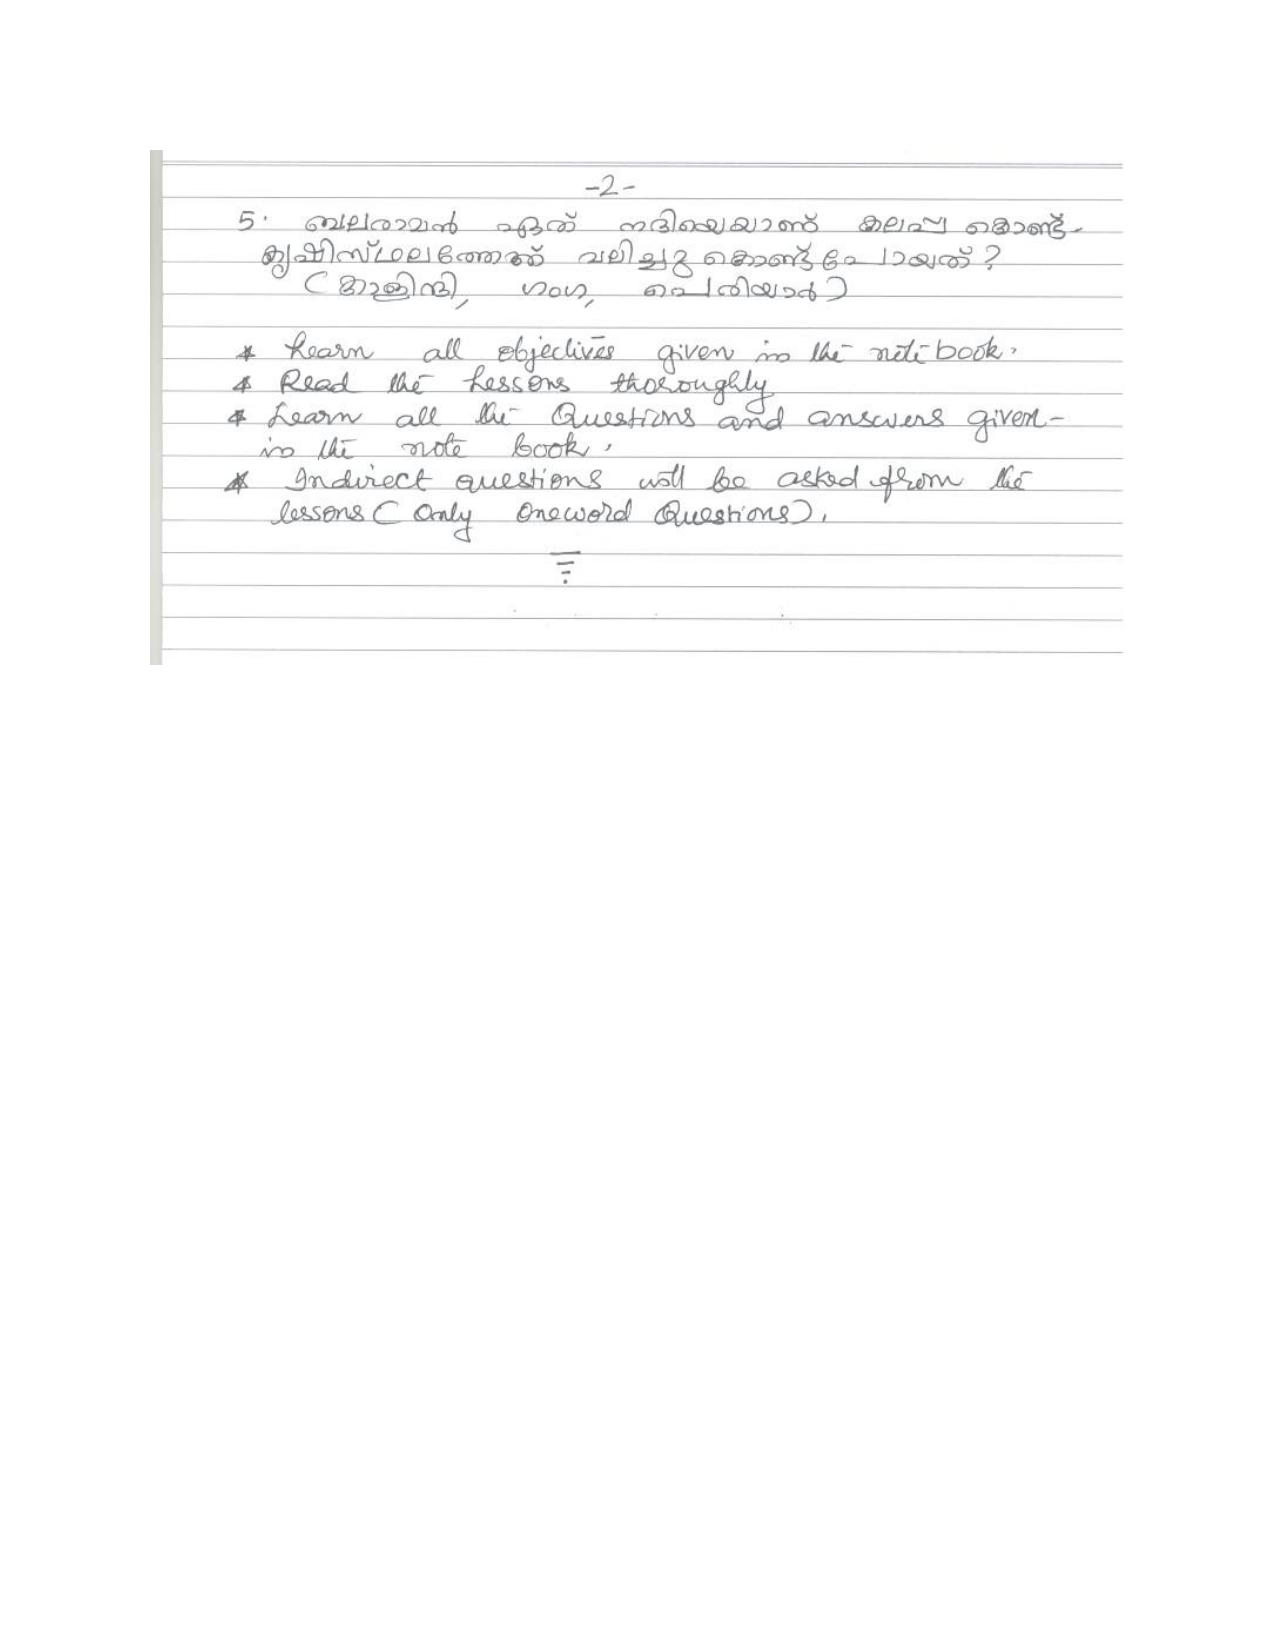 -2-
5. ബലരാമൻ ഏത് നദിയെയാണ് കലപ്പ കൊണ്ട്-
കൃഷിസ്ഥലത്തേക്ക് വലിച്ചു കൊണ്ട് പോയത്?
(കാളിന്ദി, ഗംഗ, പെരിയാർ)
* Learn all objectives given in the note book.
* Read the Lessons thoroughly
* Learn all the Questions and answers given-
in the note book.
* Indirect questions will be asked from the
lessons ( Only Oneword Questions).